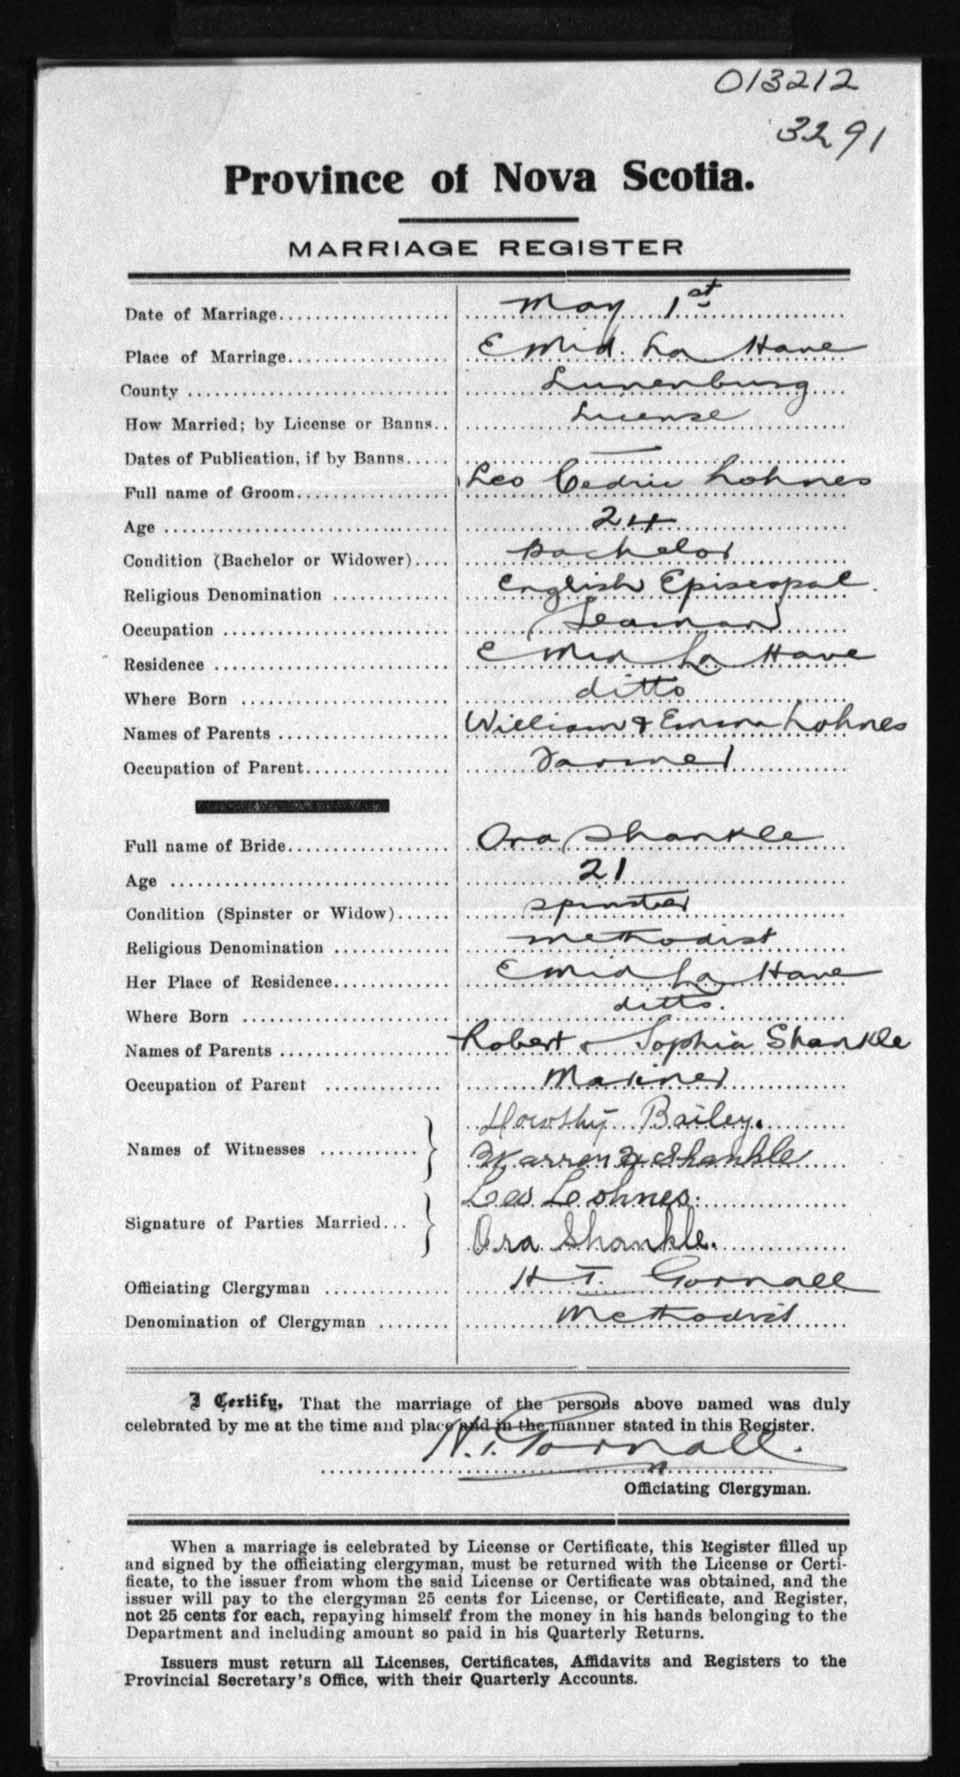 013212
3291
Province of Nova Scotia.
MARRIAGE REGISTER
Date of Marriage.................. May 1st
Place of Marriage................. E Mid. La Have
County ........................... Lunenburg
How Married; by License or Banns.. License
Dates of Publication, if by Banns..... —
Full name of Groom................ Leo Cedric Lohnes
Age .............................. 24
Condition (Bachelor or Widower).... Bachelor
Religious Denomination ............ English Episcopal
Occupation ....................... Seaman
Residence ........................ E Mid La Have
Where Born ....................... ditto
Names of Parents ................. William & Emma Lohnes
Occupation of Parent.............. Farmer
Full name of Bride................ Ora Shankle
Age .............................. 21
Condition (Spinster or Widow)...... Spinster
Religious Denomination ............ Methodist
Her Place of Residence............ E Mid La Have
Where Born ....................... ditto.
Names of Parents ................. Robert & Sophia Shankle
Occupation of Parent ............. Mariner
Names of Witnesses ........... Bailey.
Warren Shankle
Signature of Parties Married... Leo Lohnes.
Ora Shankle.
Officiating Clergyman ............ H T. Gornall
Denomination of Clergyman ........ Methodist
I Certify, That the marriage of the persons above named was duly
celebrated by me at the time and place and in the manner stated in this Register.
H. T. Gornall.
Officiating Clergyman.
When a marriage is celebrated by License or Certificate, this Register filled up
and signed by the officiating clergyman, must be returned with the License or Certi-
ficate, to the issuer from whom the said License or Certificate was obtained, and the
issuer will pay to the clergyman 25 cents for License, or Certificate, and Register,
not 25 cents for each, repaying himself from the money in his hands belonging to the
Department and including amount so paid in his Quarterly Returns.
Issuers must return all Licenses, Certificates, Affidavits and Registers to the
Provincial Secretary's Office, with their Quarterly Accounts.